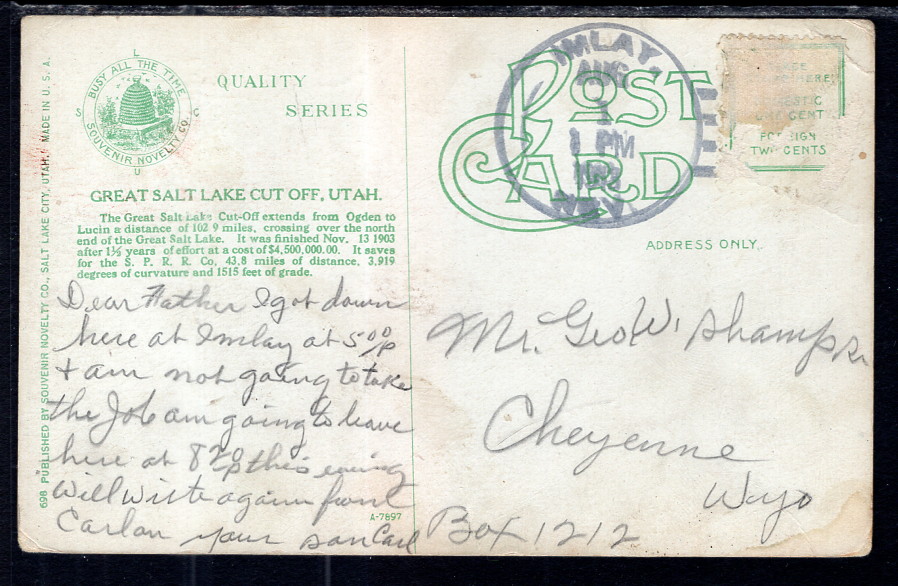 BUSY ALL THE TIME
SOUVENIR NOVELTY CO.
L
S C
U
QUALITY
SERIES
GREAT SALT LAKE CUT OFF, UTAH.
The Great Salt Lake Cut-Off extends from Ogden to
Lucin a distance of 102 9 miles, crossing over the north
end of the Great Salt Lake. It was finished Nov. 13 1903
after 1½ years of effort at a cost of $4,500,000.00. It saves
for the S. P. R. R. Co. 43.8 miles of distance, 3,919
degrees of curvature and 1515 feet of grade.
698 PUBLISHED BY SOUVENIR NOVELTY CO., SALT LAKE CITY, UTAH. MADE IN U. S. A.
Dear Father I got down
here at Imlay at 5 00 P
+ am not going to take
the Job am going to leave
here at 8 20 P this evening
Will Write again from
Carlan your son Carl
A-7897
POST
CARD
IMLAY,
AUG
1
1 PM
NEV.
HERE
DOMESTIC
ONE CENT
FOREIGN
TWO CENTS
ADDRESS ONLY.
Mr. Geo W. Shamp Sr.
Cheyenne
Wyo
Box 1212